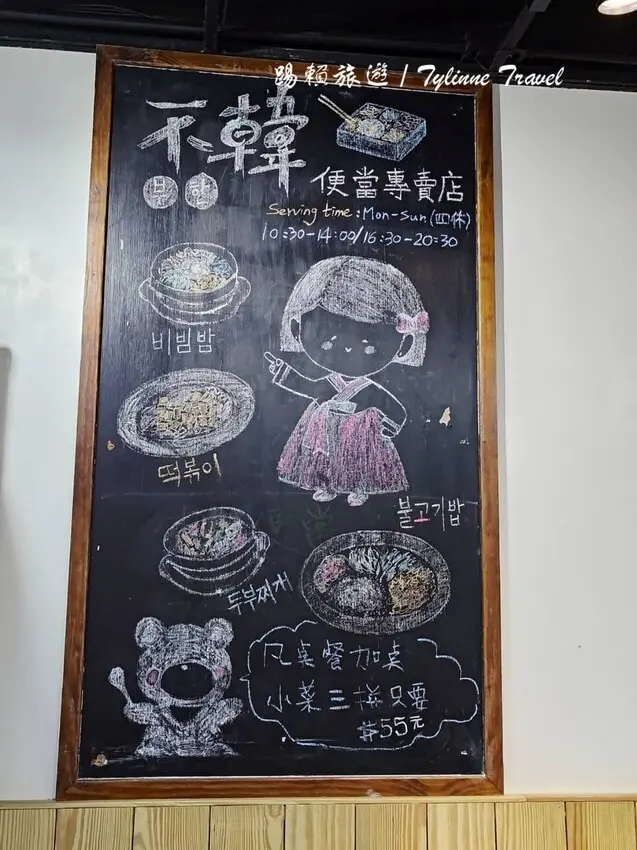 踢賴旅遊 / Tylinne Travel
不韓
부한
便當專賣店
Serving time : Mon-Sun (四休)
10:30-14:00/16:30-20:30
비빔밥
떡볶이
불고기밥
두부찌개
凡桌餐加桌
小菜三拼只要
$55元